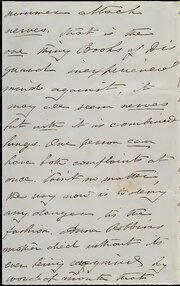 summer attack
nerves. That is the
one thing Books of Dis
guard inexperienced
minds against. It
may all seem nerves
but with it is combined
lungs. One person can
have both complaints at
once. Joint no matter,
the way now is to deny
any danger. As the
fashion. Anna Robbins
mother died without its
ever being recognized by
word of mouth that